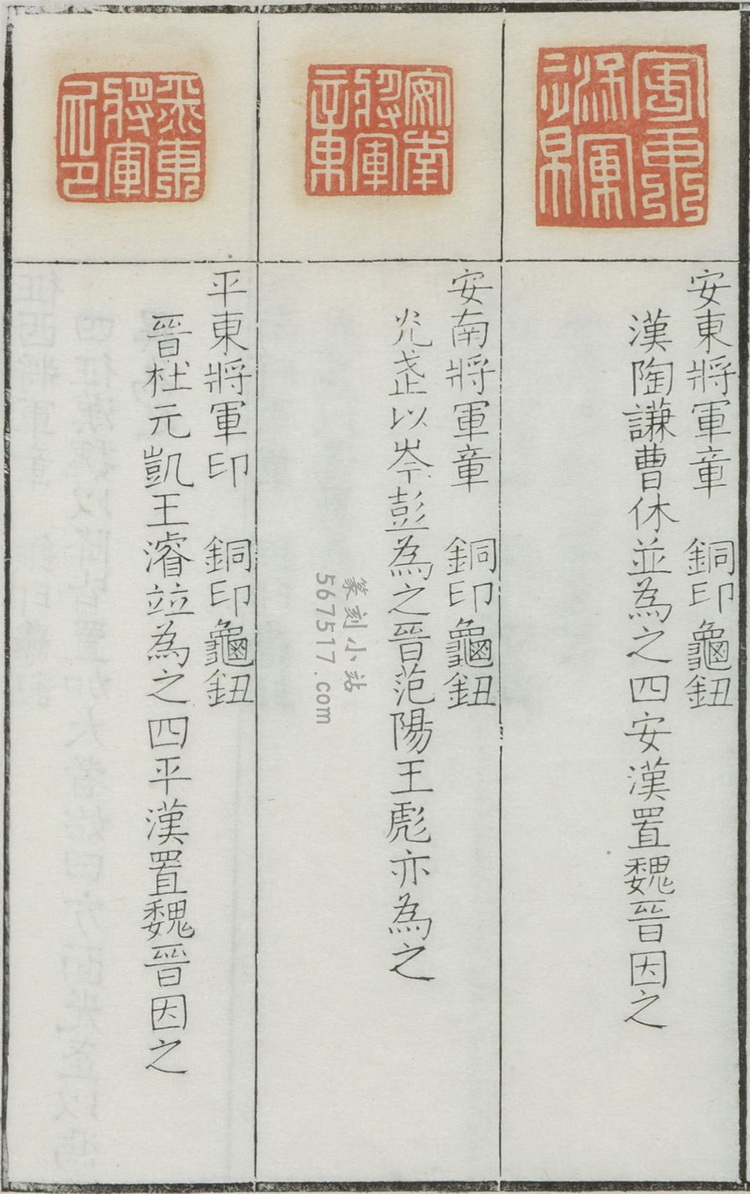 安東將軍章
安東將軍章　銅印龜鈕
漢陶謙曹休並為之四安漢置魏晉因之
安南將軍章
安南將軍章　銅印龜鈕
光武以岑彭為之晉范陽王彪亦為之
平東將軍印
平東將軍印　銅印龜鈕
晉杜元凱王濬竝為之四平漢置魏晉因之
篆刻小站
567517.com